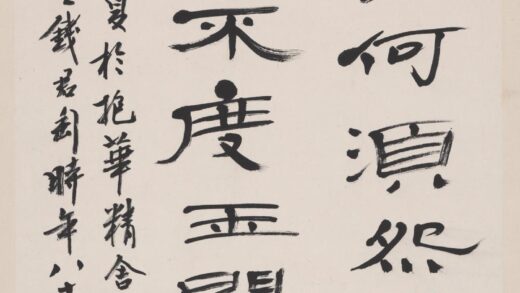 何湏怨
不度玉門
夏於抱華精舍
錢君匋時年八